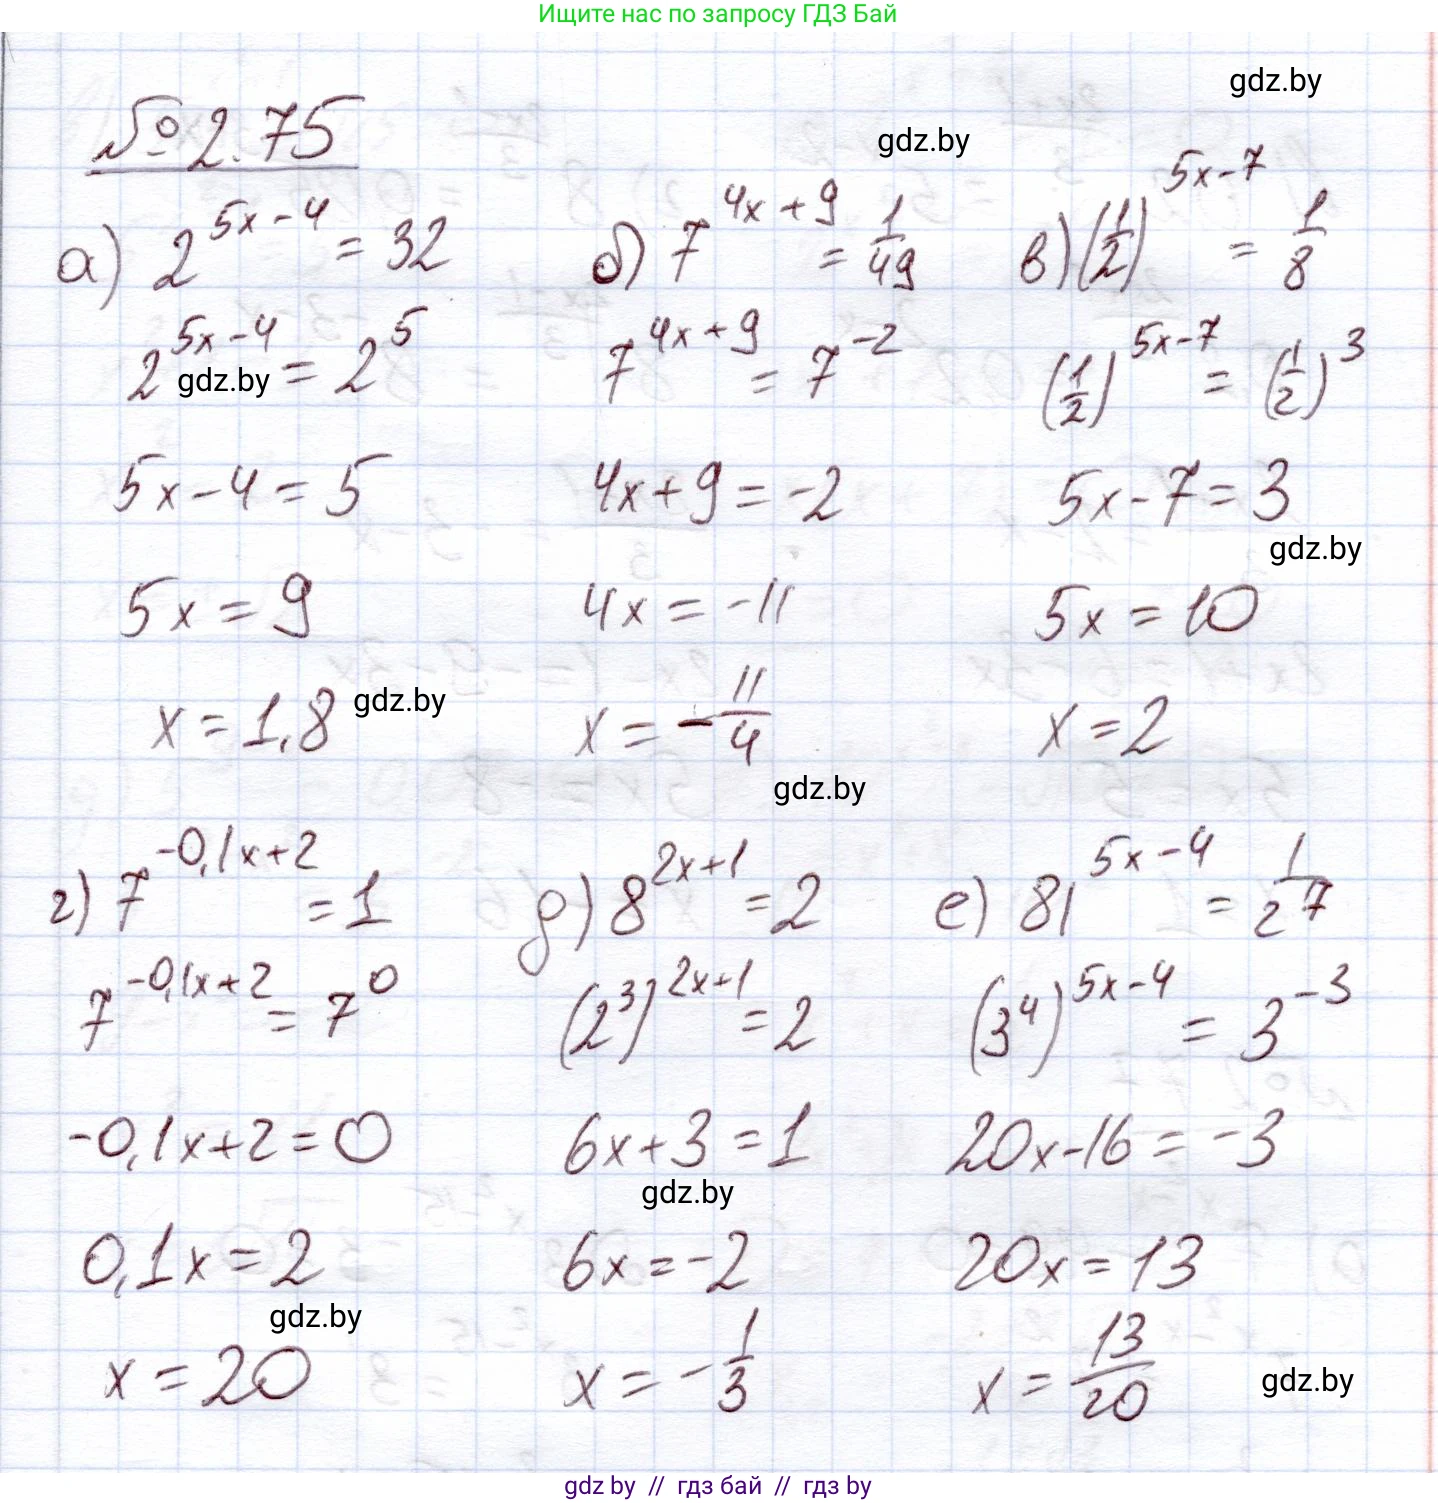 Ищите нас по запросу ГДЗ Бай
gdz.by
№ 2.75
gdz.by
а) 2^(5x-4) = 32
б) 7^(4x+9) = 1/49
в) (1/2)^(5x-7) = 1/8
2^(5x-4) = 2^5
gdz.by
7^(4x+9) = 7^(-2)
(1/2)^(5x-7) = (1/2)^3
5x-4=5
4x+9=-2
5x-7=3
gdz.by
5x=9
4x=-11
5x=10
x=1,8
gdz.by
x=-11/4
x=2
gdz.by
г) 7^(-0,1x+2) = 1
д) 8^(2x+1) = 2
е) 81^(5x-4) = 1/27
7^(-0,1x+2) = 7^0
(2^3)^(2x+1) = 2
(3^4)^(5x-4) = 3^(-3)
-0,1x+2=0
6x+3=1
20x-16=-3
gdz.by
0,1x=2
6x=-2
20x=13
gdz.by
x=20
x=-1/3
x=13/20
gdz.by
gdz by // гдз бай // гдз by